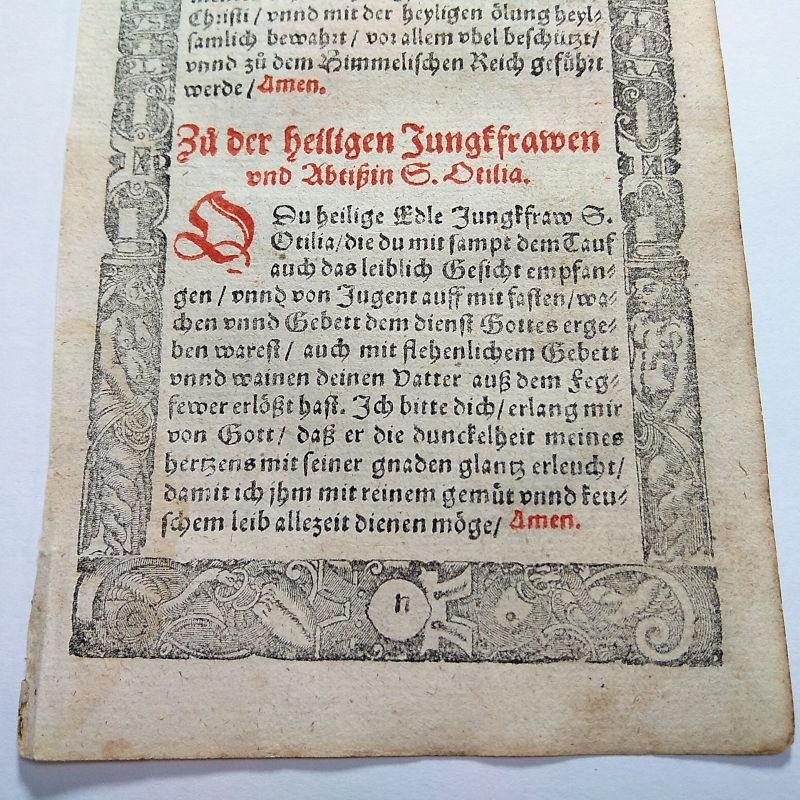 Christi/ vnnd mit der heyligen ölung heyl⸗
samlich bewahrt/ vor allem vbel beschützt/
vnnd zů dem Himmelischen Reich geführt
werde/ Amen.
Zů der heiligen Jungkfrawen
vnd Abtißin S. Otilia.
O Du heilige Edle Jungkfraw S.
Otilia/ die du mit sampt dem Tauf
auch das leiblich Gesicht empfan⸗
gen/ vnnd von Jugent auff mit fasten/ wa⸗
chen vnnd Gebett dem dienst Gottes erge⸗
ben warest/ auch mit flehenlichem Gebett
vnnd wainen deinen Vatter auß dem Feg⸗
fewer erlößt hast. Ich bitte dich/ erlang mir
von Gott/ daß er die dunckelheit meines
hertzens mit seiner gnaden glantz erleucht/
damit ich jhm mit reinem gemüt vnnd keu⸗
schem leib allezeit dienen möge/ Amen.
n